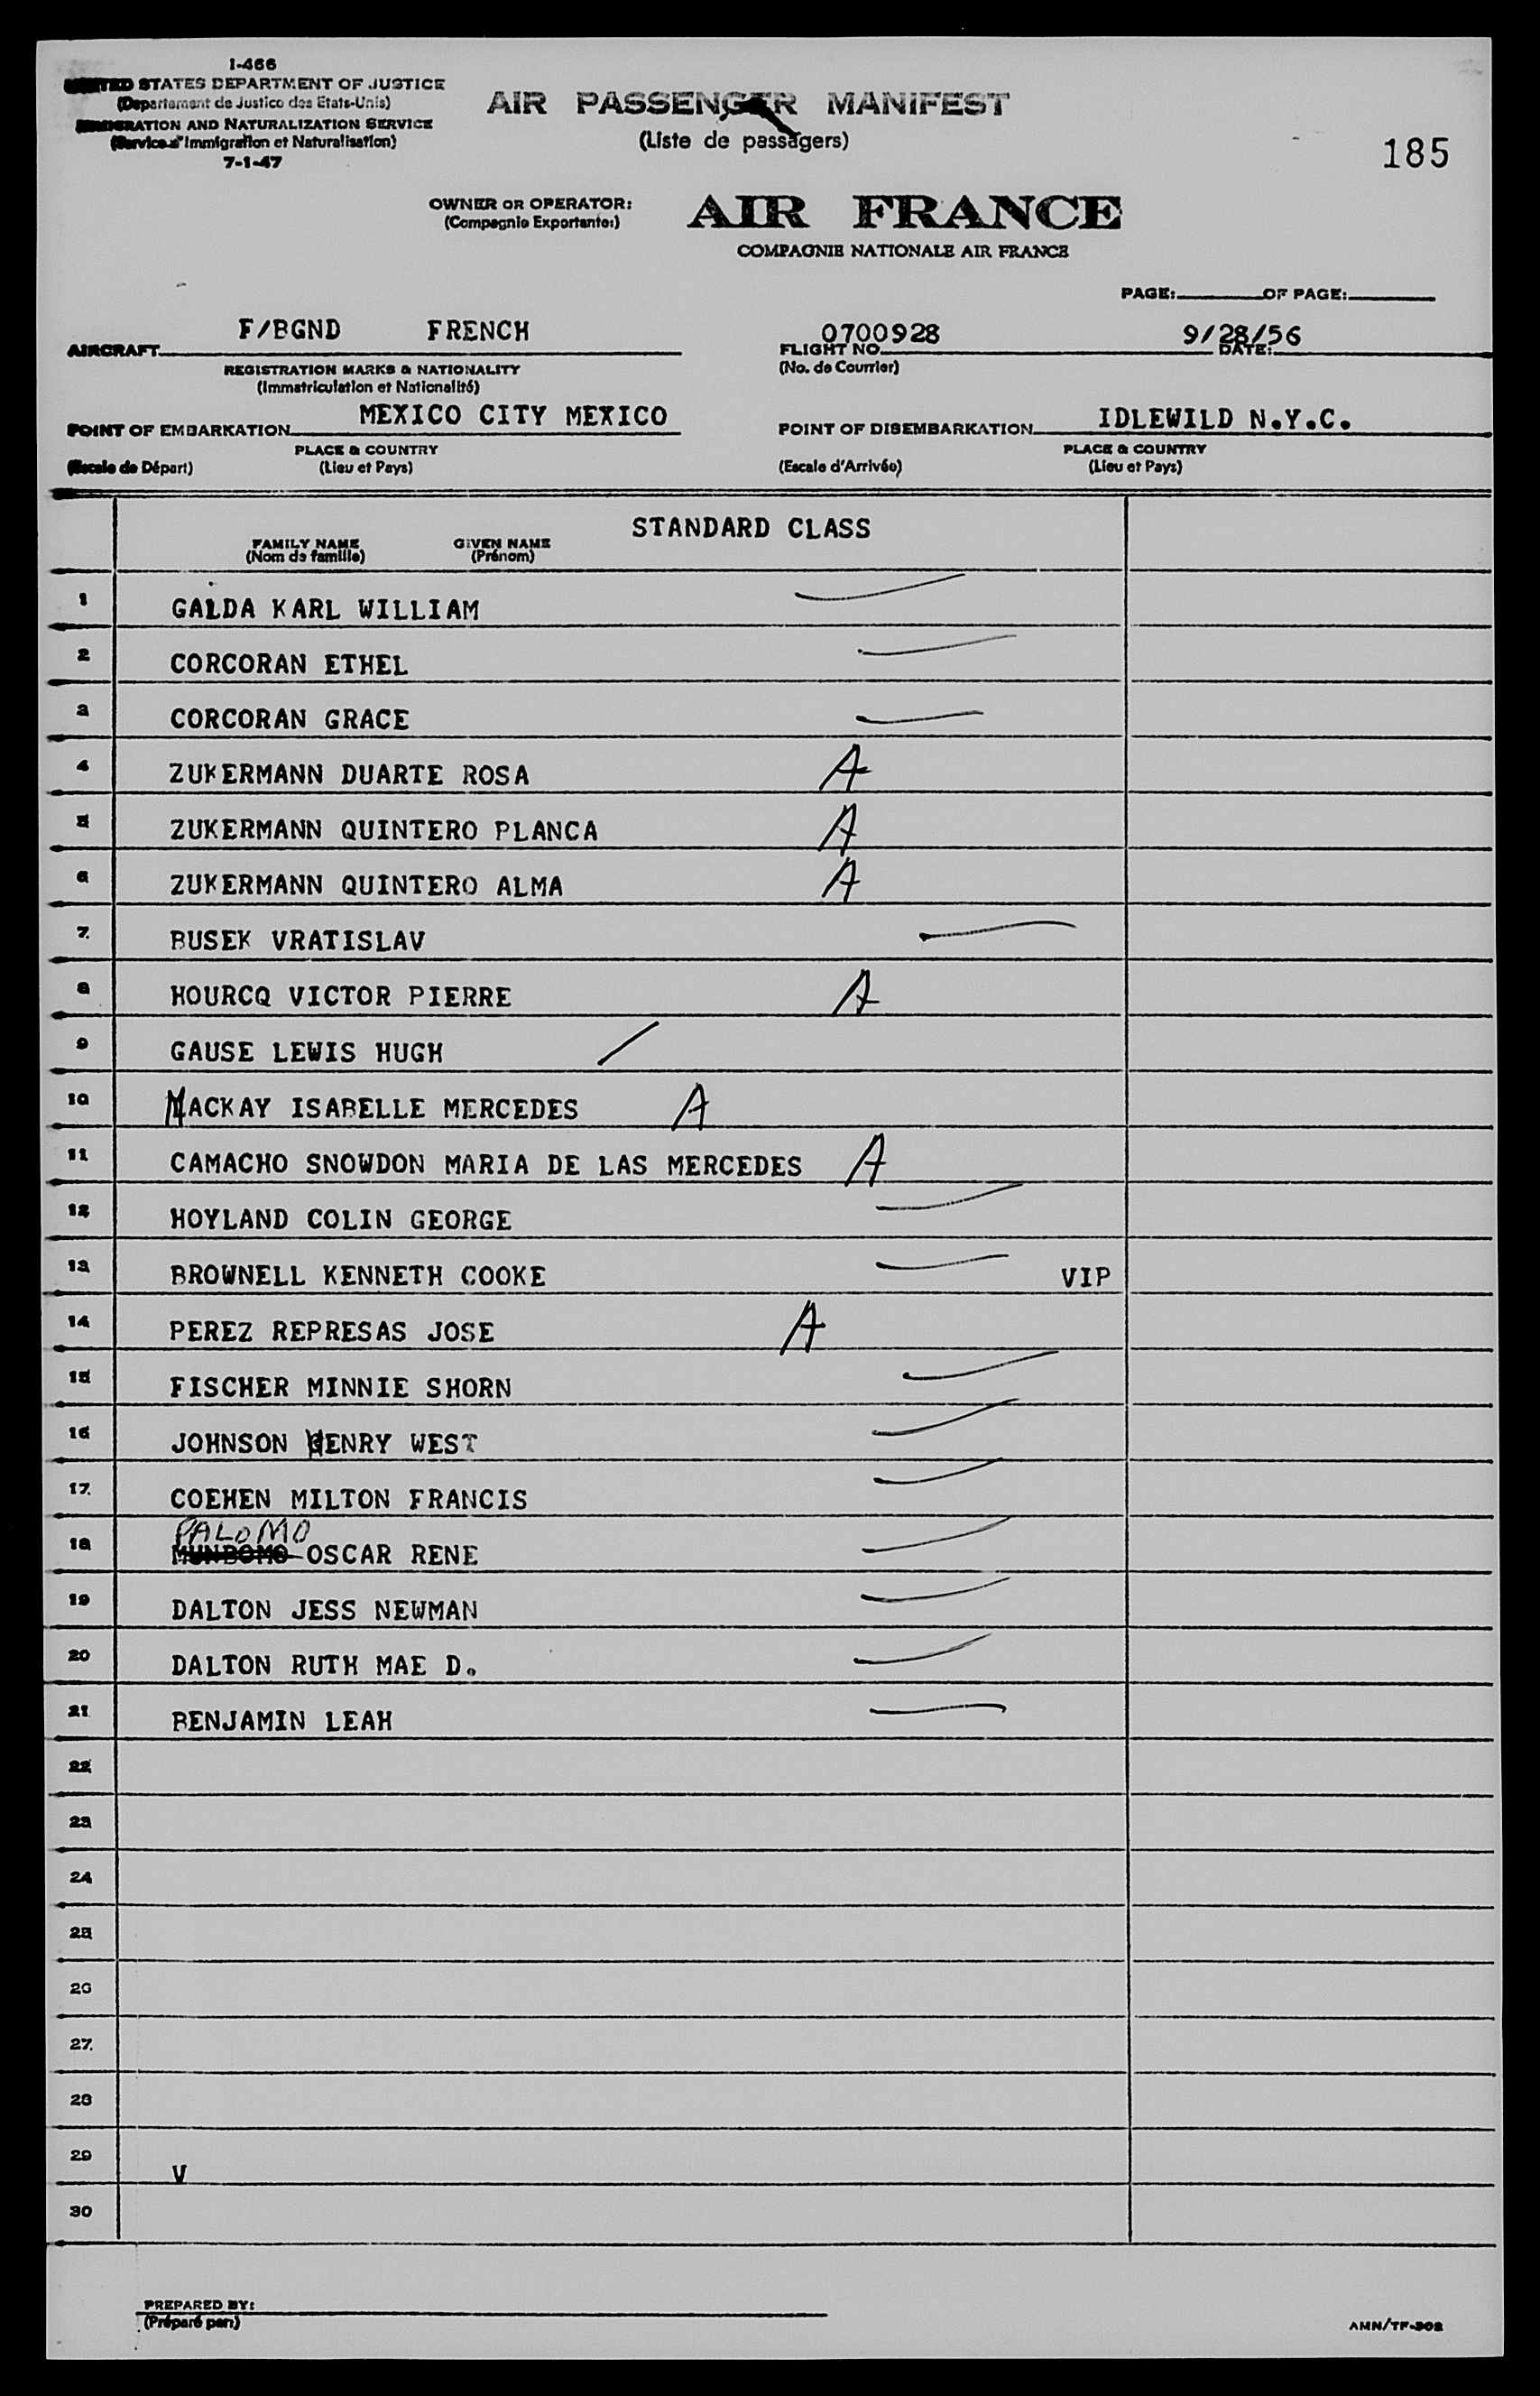 I-466
UNITED STATES DEPARTMENT OF JUSTICE
(Departement de Justice des Etats-Unis)
IMMIGRATION AND NATURALIZATION SERVICE
(Service d'Immigration et Naturalisation)
7-1-47
AIR PASSENGER MANIFEST
(Liste de passagers)
185
OWNER OR OPERATOR:
(Compagnie Exportante:)
AIR FRANCE
COMPAGNIE NATIONALE AIR FRANCE
PAGE: OF PAGE:
AIRCRAFT F/BGND FRENCH
REGISTRATION MARKS & NATIONALITY
(Immatriculation et Nationalité)
FLIGHT NO. 0700928
(No. de Courrier)
DATE: 9/28/56
POINT OF EMBARKATION MEXICO CITY MEXICO
PLACE & COUNTRY
(Escale de Départ) (Lieu et Pays)
POINT OF DISEMBARKATION IDLEWILD N.Y.C.
PLACE & COUNTRY
(Escale d'Arrivée) (Lieu et Pays)
STANDARD CLASS
FAMILY NAME GIVEN NAME
(Nom de famille) (Prénom)
1 GALDA KARL WILLIAM
2 CORCORAN ETHEL
3 CORCORAN GRACE
4 ZUKERMANN DUARTE ROSA A
5 ZUKERMANN QUINTERO PLANCA A
6 ZUKERMANN QUINTERO ALMA A
7 BUSEK VRATISLAV
8 HOURCQ VICTOR PIERRE A
9 GAUSE LEWIS HUGH /
10 MACKAY ISABELLE MERCEDES A
11 CAMACHO SNOWDON MARIA DE LAS MERCEDES A
12 HOYLAND COLIN GEORGE
13 BROWNELL KENNETH COOKE VIP
14 PEREZ REPRESAS JOSE A
15 FISCHER MINNIE SHORN
16 JOHNSON HENRY WEST
17 COEHEN MILTON FRANCIS
PALOMO
18 OSCAR RENE
19 DALTON JESS NEWMAN
20 DALTON RUTH MAE D.
21 BENJAMIN LEAH
22
23
24
25
26
27
28
29 V
30
PREPARED BY:
(Préparé par:)
AMN/TF-302